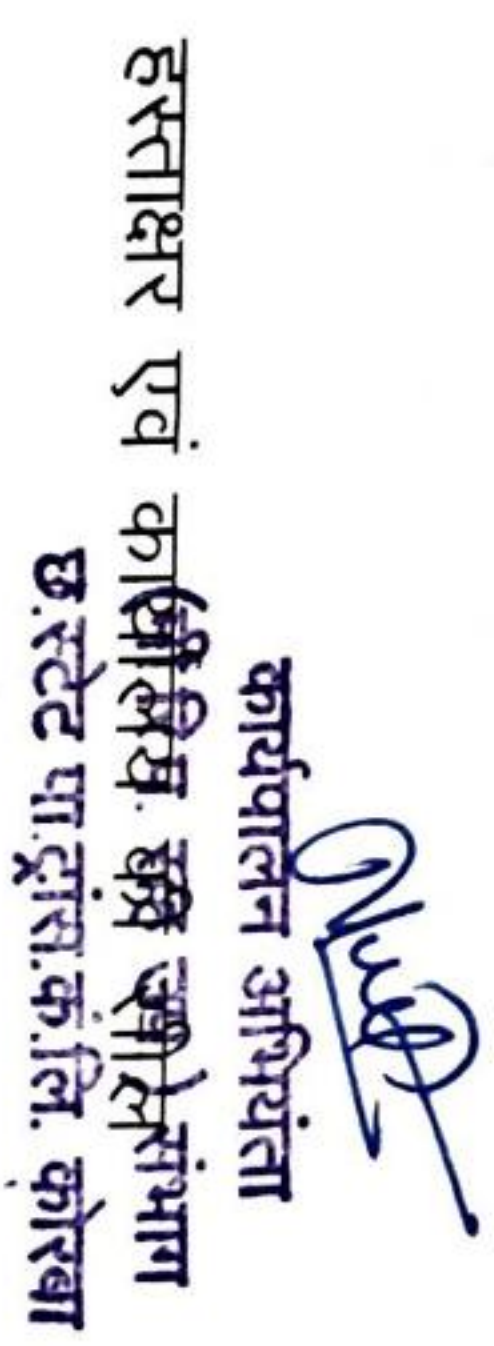 कार्यपालन अभियंता
हस्ताक्षर एवं कार्यालय सील
संभाग
छ.स्टेट पा.ट्रांस.कं.लि. कोरबा